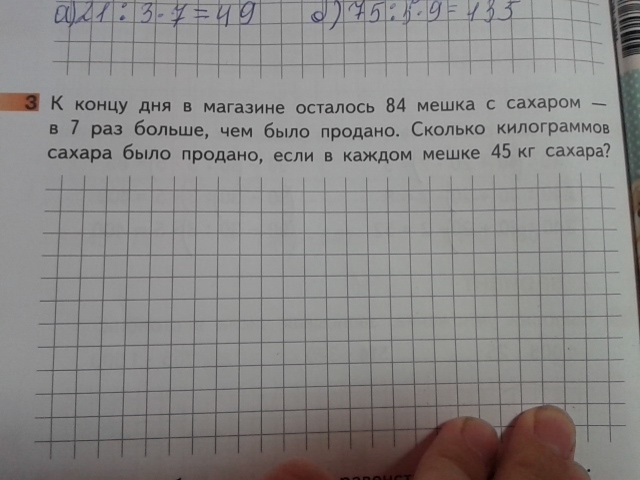 а) 21 : 3 · 7 = 49 б) 75 : 5 · 9 = 135
3 К концу дня в магазине осталось 84 мешка с сахаром —
в 7 раз больше, чем было продано. Сколько килограммов
сахара было продано, если в каждом мешке 45 кг сахара?